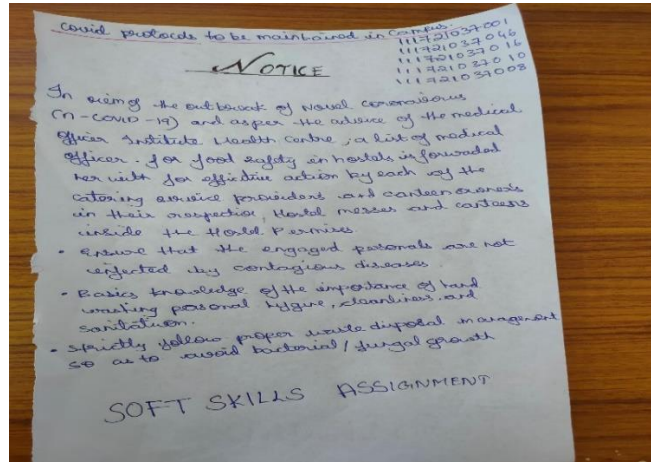 covid protocols to be maintained in Campus.
111721037001
111721037046
111721037016
111721037010
111721037008
NOTICE
In view of the outbreak of Novel coronavirus
(n-COVID-19) and as per the advice of the medical
Officer Institute Health Centre, a list of medical
officer. for food safety in hostels is forwaded
her with for effective action by each of the
catering service providers and canteen owners
in their respective, Hostel messes and canteens
inside the Hostel Permises.
• Ensure that the engaged personals are not
infected by contagious diseases.
• Basics knowledge of the importance of hand
washing personal hygine, cleanliness and
sanitation.
• Strictly follow proper waste disposal management
so as to avoid bacterial/fungal growth
SOFT SKILLS ASSIGNMENT